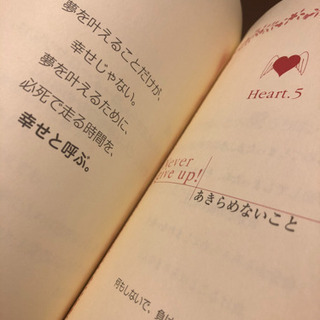 夢を叶えることだけが、
幸せじゃない。
夢を叶えるために、
必死で走る時間を、
幸せと呼ぶ。
Heart.5
Never
give up!
あきらめないこと
何もしないで、